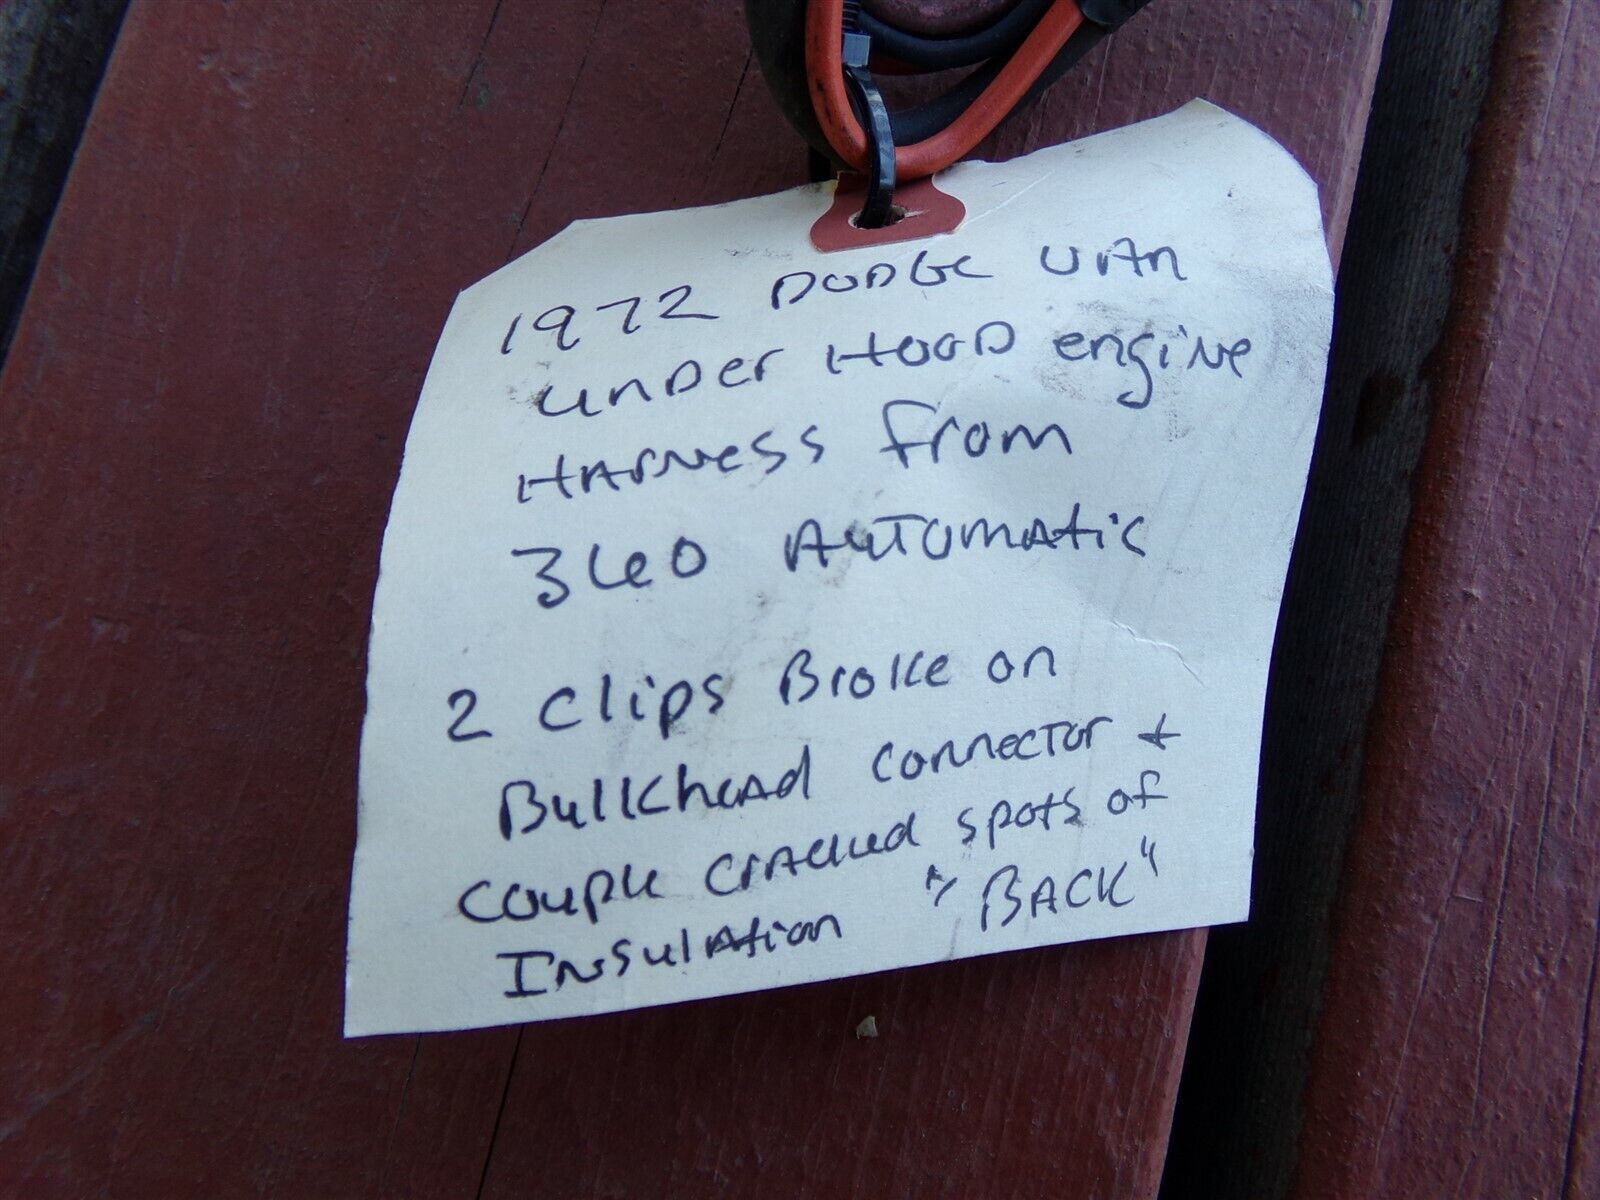 1972 DODGE VAn
unDer HOOD engiNe
HArNess from
360 AuTOmAtic
2 clips Broke on
Bulkhead connecTor &
couple cracked spots of
InsulAtion "BACK"